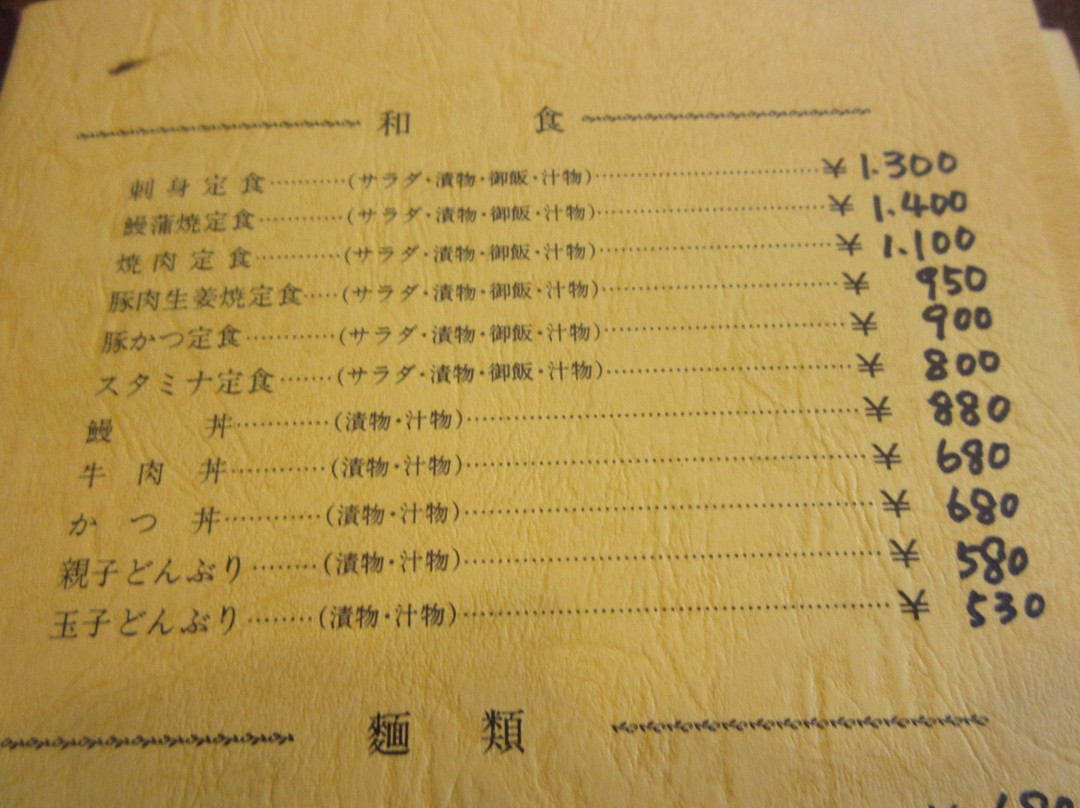 和食
刺身定食…………(サラダ・漬物・御飯・汁物)…………¥1.300
鰻蒲焼定食…………(サラダ・漬物・御飯・汁物)…………¥1.400
焼肉定食…………(サラダ・漬物・御飯・汁物)…………¥1.100
豚肉生姜焼定食……(サラダ・漬物・御飯・汁物)…………¥950
豚かつ定食…………(サラダ・漬物・御飯・汁物)…………¥900
スタミナ定食……(サラダ・漬物・御飯・汁物)…………¥800
鰻丼…………(漬物・汁物)…………¥880
牛肉丼…………(漬物・汁物)…………¥680
かつ丼…………(漬物・汁物)…………¥680
親子どんぶり………(漬物・汁物)…………¥580
玉子どんぶり………(漬物・汁物)…………¥530
麺類